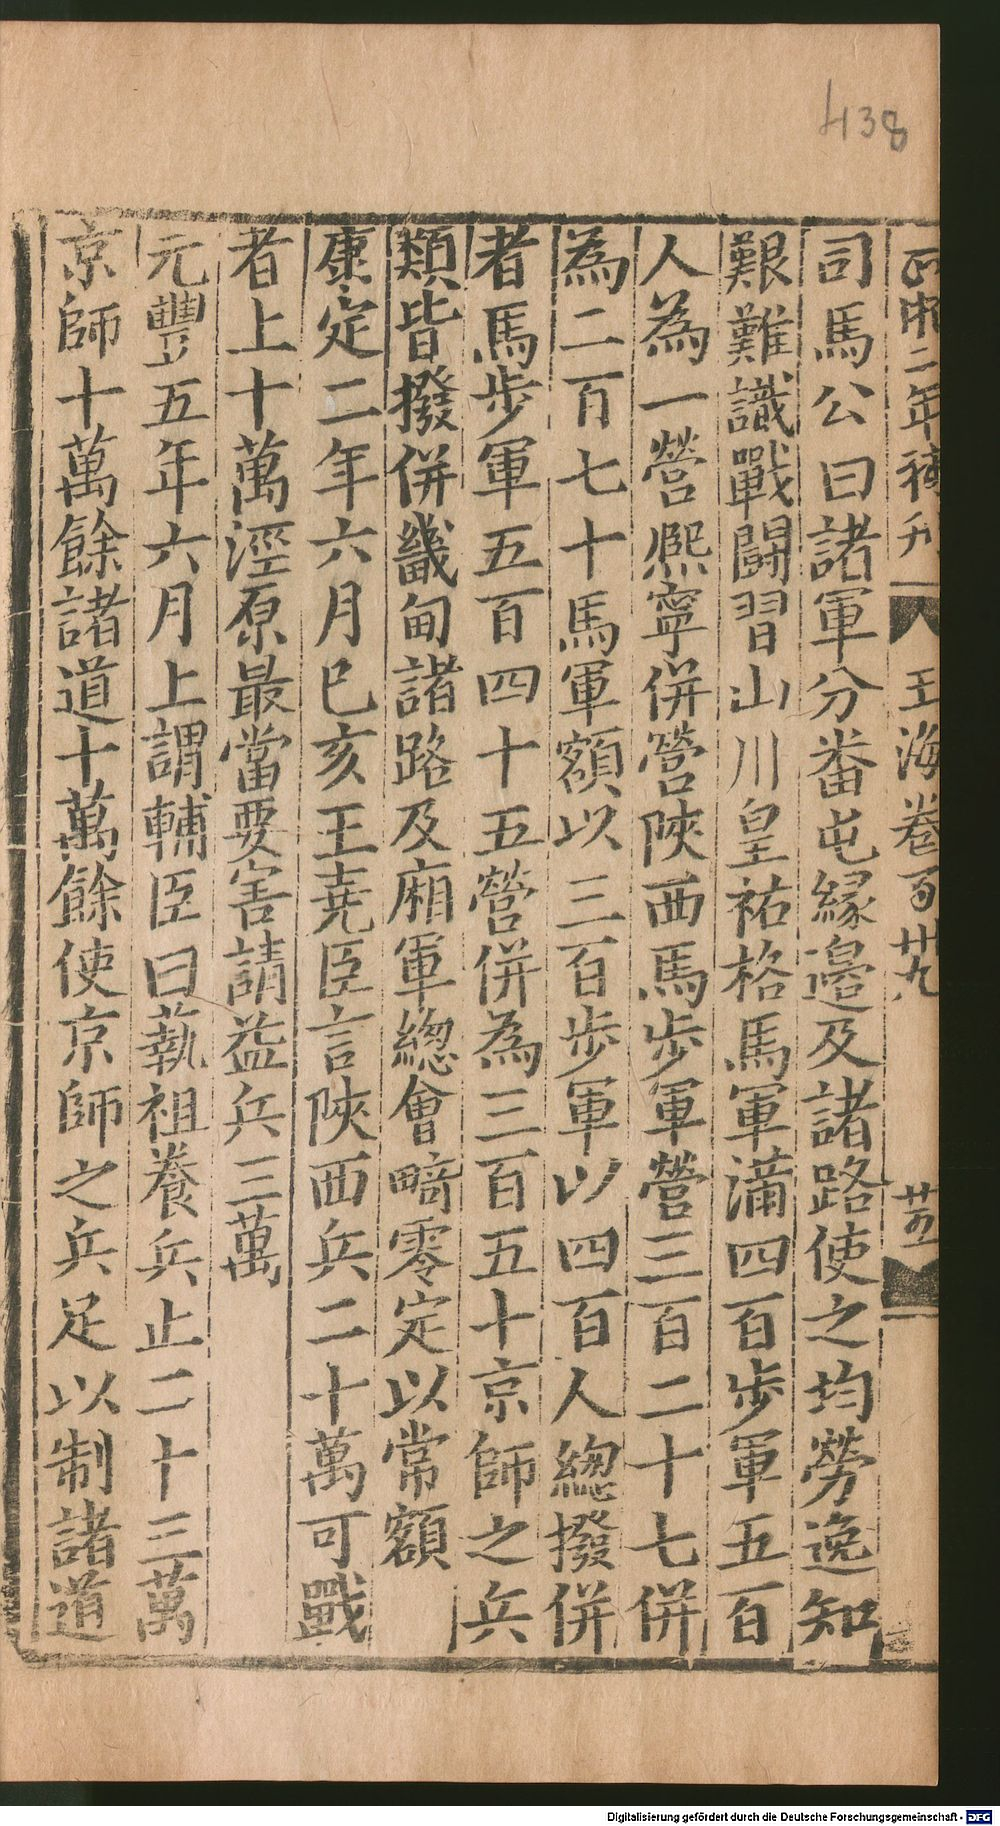 438
二年補刊 玉海卷百卅九 廿五
司馬公曰諸軍分畨屯緣邉及諸路使之均勞逸知
艱難識戰鬬習山川皇祐格馬軍滿四百步軍五百
人為一營熈寧併營陜西馬步軍營三百二十七併
為二百七十馬軍額以三百步軍以四百人緫撥併
者馬步軍五百四十五營併為三百五十京師之兵
類皆撥併畿甸諸路及廂軍緫會畸零定以常額
康定二年六月巳亥王堯臣言陜西兵二十萬可戰
者上十萬涇原最當要害請益兵三萬
元豐五年六月上謂輔臣曰藝祖養兵止二十三萬
京師十萬餘諸道十萬餘使京師之兵足以制諸道
Digitalisierung gefördert durch die Deutsche Forschungsgemeinschaft - DFG